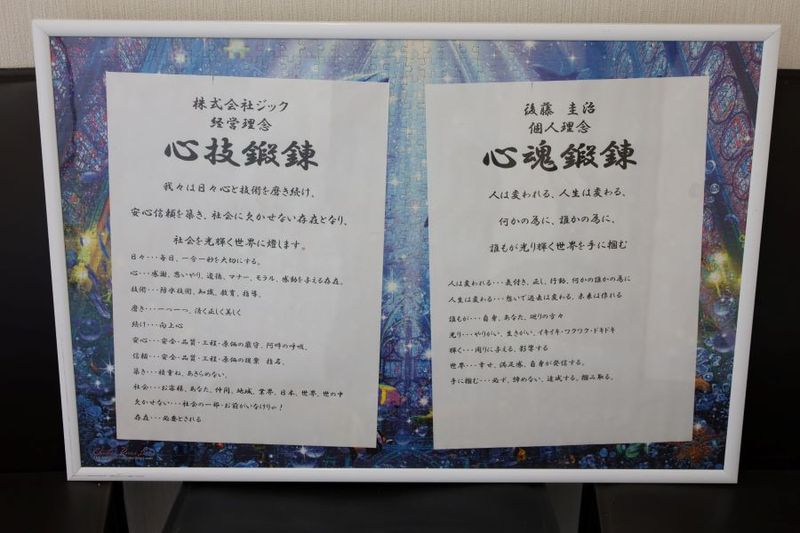 株式会社ジック
経営理念
心技鍛錬
我々は日々心と技術を磨き続け、
安心信頼を築き、社会に欠かせない存在となり、
社会を光輝く世界に燈します。
日々・・・毎日、一分一秒を大切にする。
心・・・感謝、思いやり、道徳、マナー、モラル、感動を与える存在。
技術・・・防水技術、知識、教育、指導。
磨き・・・一つ一つ、清く正しく美しく
続け・・・向上心
安心・・・安全・品質・工程・原価の厳守、阿吽の呼吸。
信頼・・・安全・品質・工程・原価の提案 指名。
築き・・・積重ね、あきらめない。
社会・・・お客様、あなた、仲間、地域、業界、日本、世界、世の中
欠かせない・・・社会の一部・お前がいなけりゃ！
存在・・・必要とされる
後藤 圭治
個人理念
心魂鍛錬
人は変われる、人生は変わる、
何かの為に、誰かの為に、
誰もが光り輝く世界を手に掴む
人は変われる・・・気付き、正し、行動、何かの誰かの為に
人生は変わる・・・想いで過去は変わる、未来は作れる
誰もが・・・自身、あなた、廻りの方々
光り・・・やりがい、生きがい、イキイキ・ワクワク・ドキドキ
輝く・・・周りに与える、影響する
世界・・・幸せ、満足感、自身が発信する。
手に掴む・・・必ず、諦めない、達成する、掴み取る。